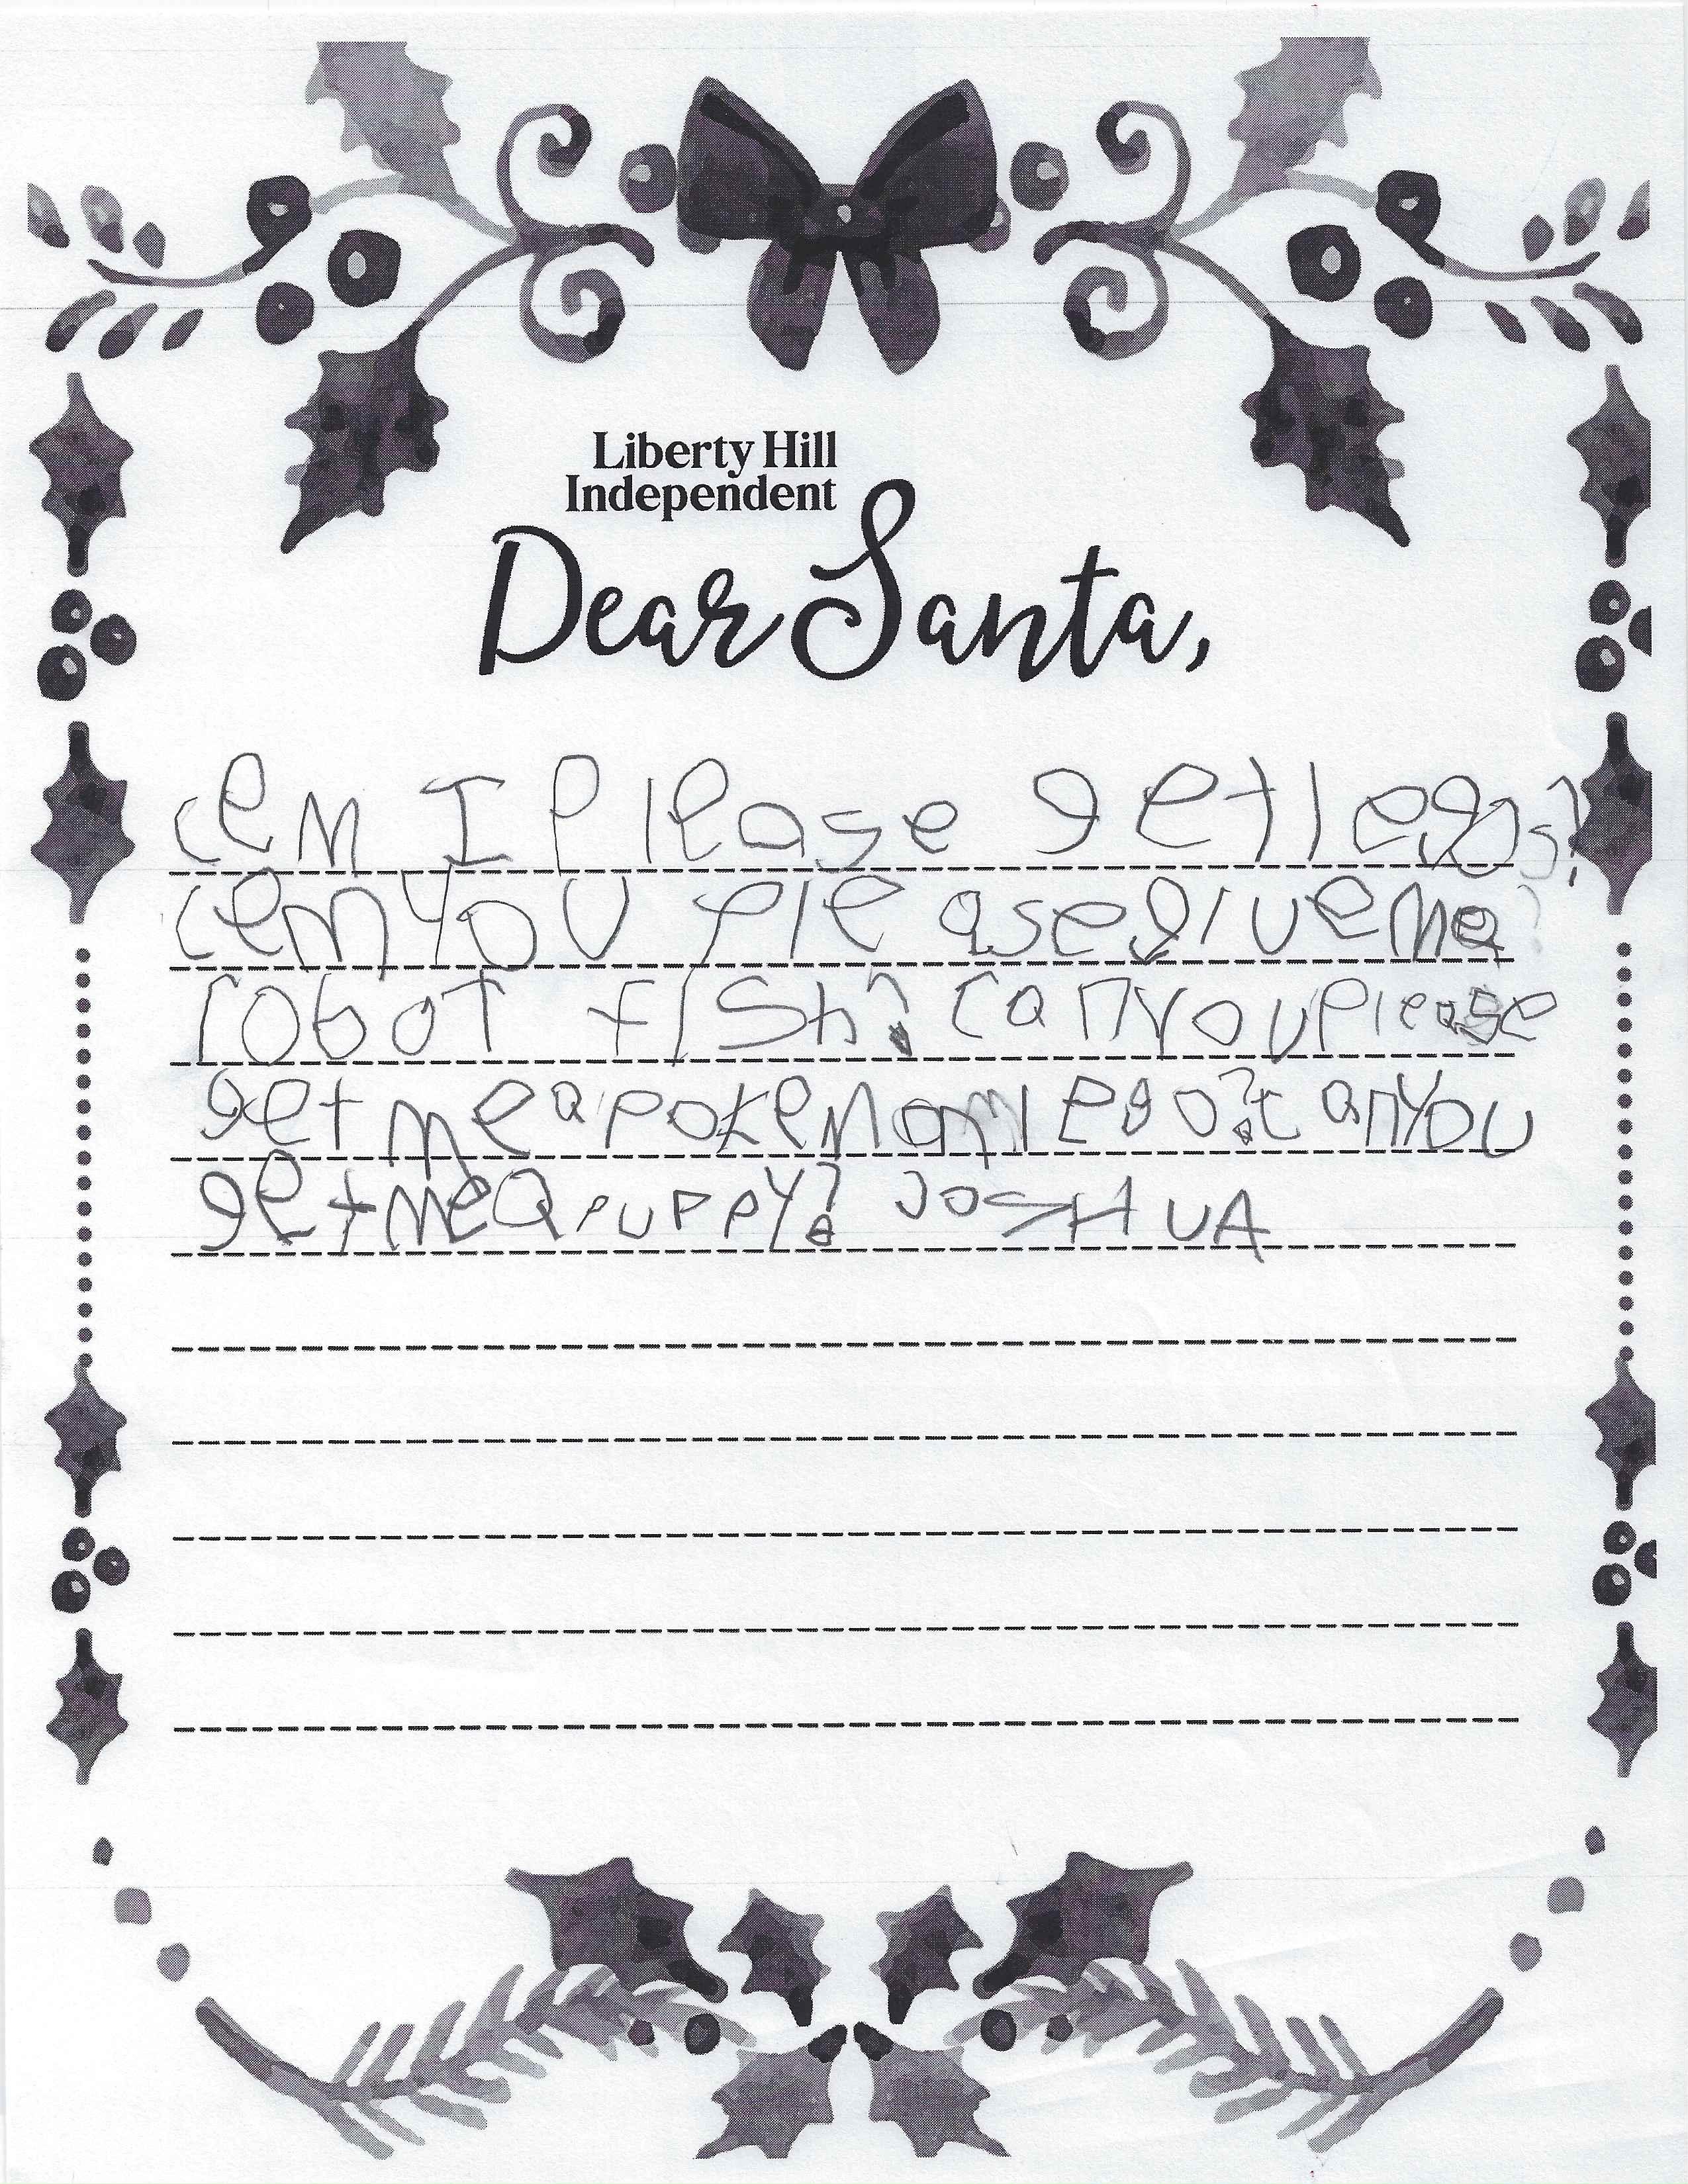 Liberty Hill
Independent
Dear Santa,
cem I Please getlegos?
cem you please giveme
robot fish? can you please
get me a pokemon lego? can you
get me a puppy? JOSHUA